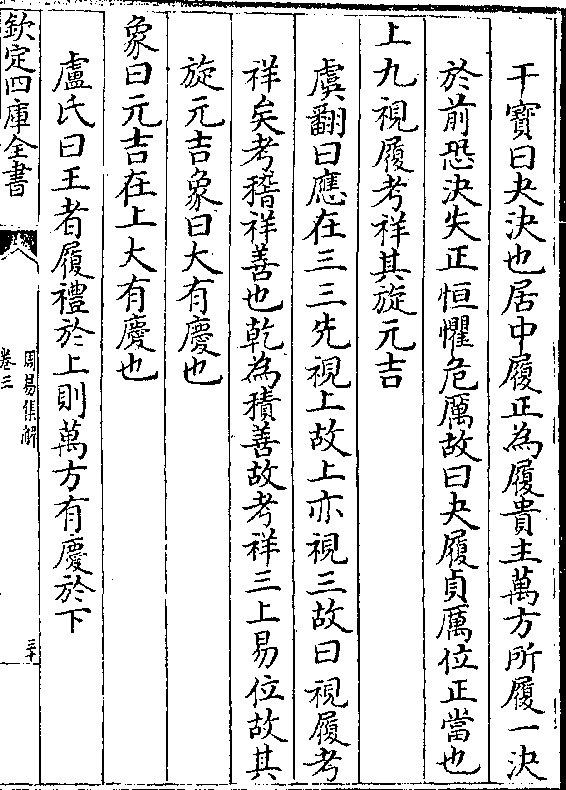 干寶曰夬決也居中履正為履貴主萬方所履一決
於前恐決失正恒懼危厲故曰夬履貞厲位正當也
上九視履考祥其旋元吉
虞翻曰應在三三先視上故上亦視三故曰視履考
祥矣考稽祥善也乾為積善故考祥三上易位故其
旋元吉象曰大有慶也
象曰元吉在上大有慶也
盧氏曰王者履禮於上則萬方有慶於下
欽定四庫全書
周易集解
卷三
三十